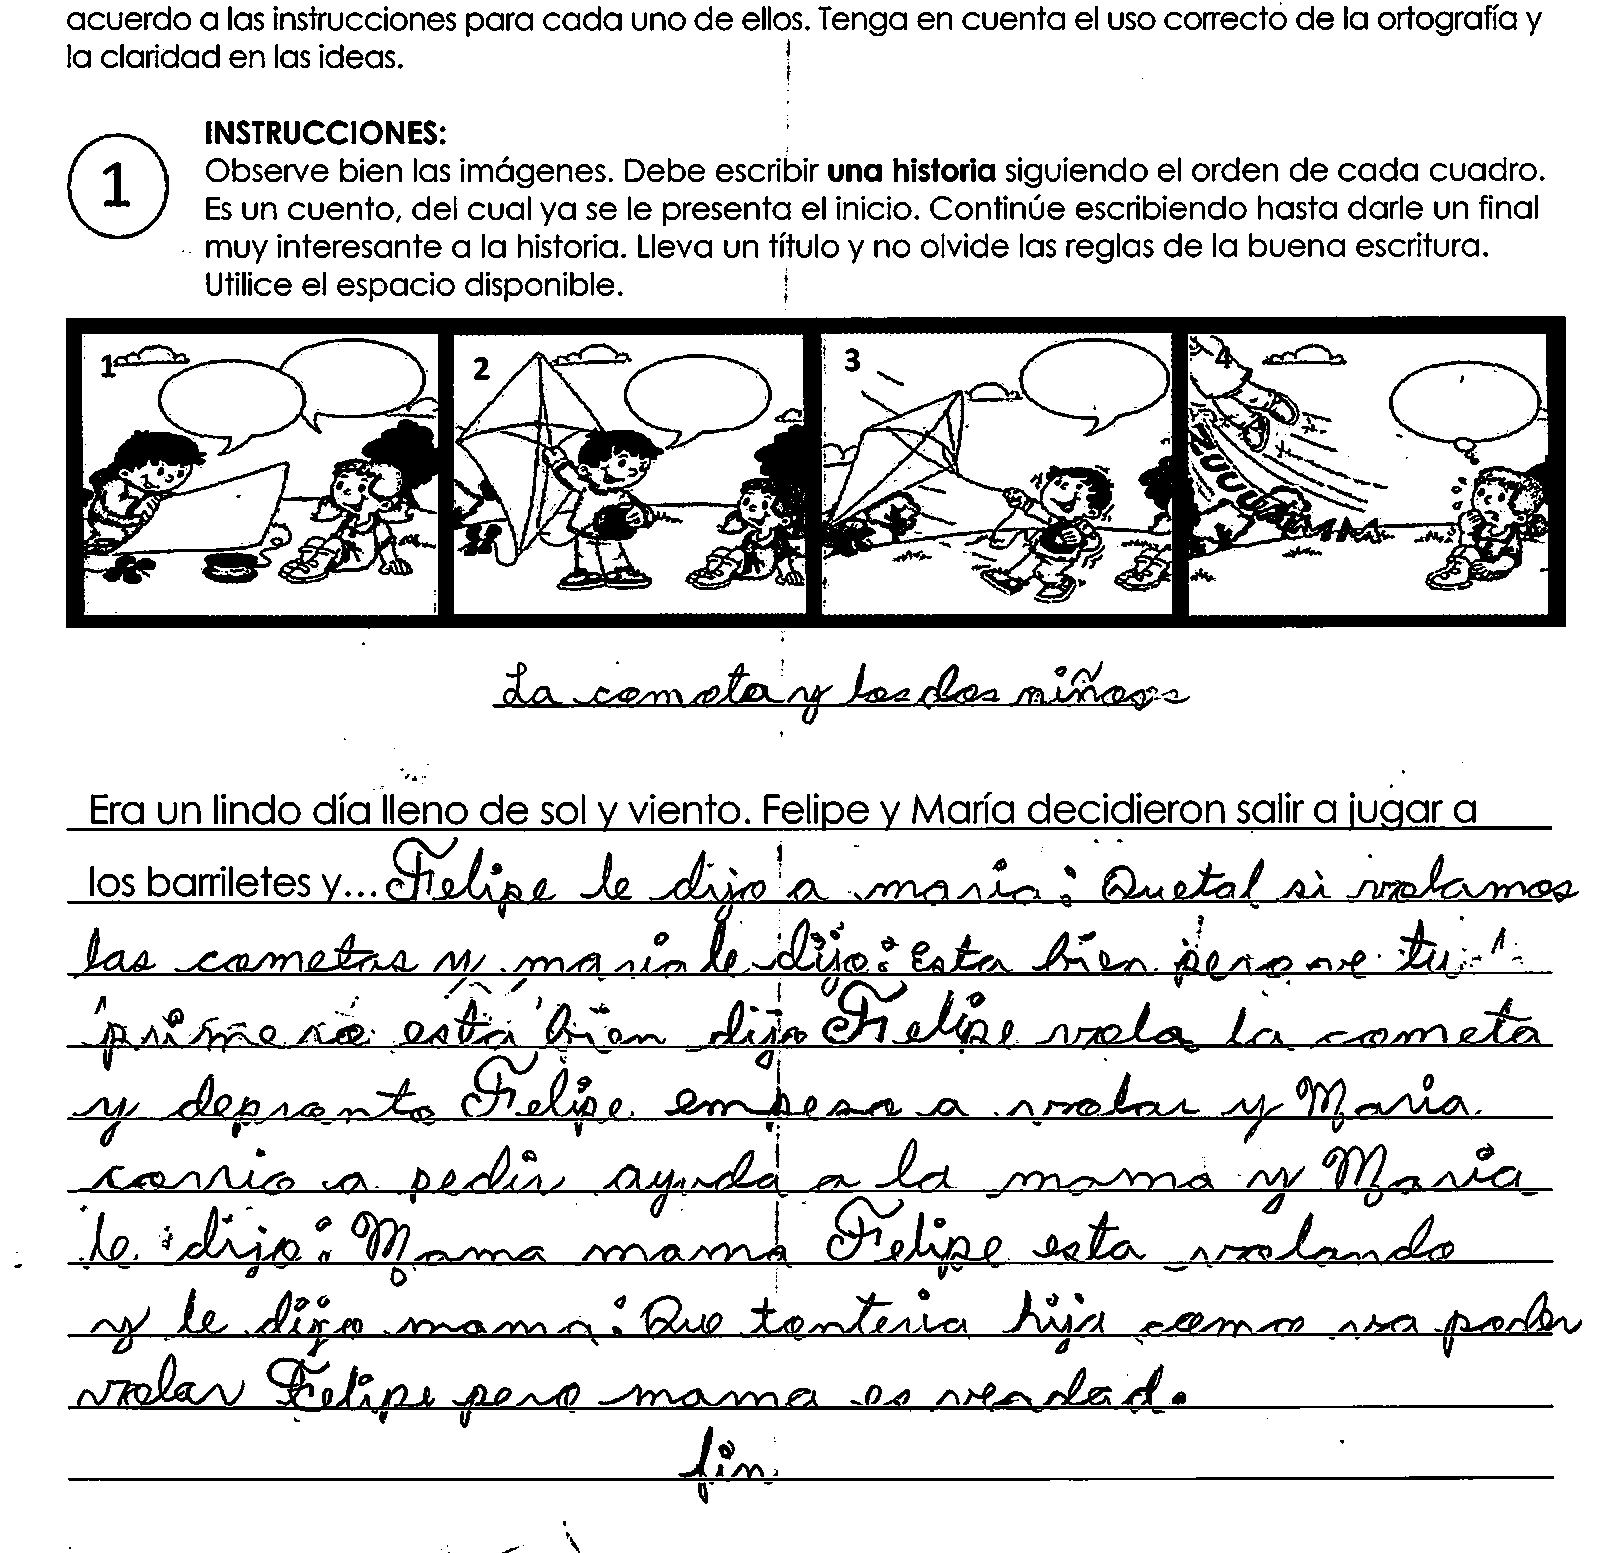 acuerdo a las instrucciones para cada uno de ellos. Tenga en cuenta el uso correcto de la ortografía y
la claridad en las ideas.
1
INSTRUCCIONES:
Observe bien las imágenes. Debe escribir una historia siguiendo el orden de cada cuadro.
Es un cuento, del cual ya se le presenta el inicio. Continúe escribiendo hasta darle un final
muy interesante a la historia. Lleva un título y no olvide las reglas de la buena escritura.
Utilice el espacio disponible.
1 2 3 4
La cometa y los dos niños
Era un lindo día lleno de sol y viento. Felipe y María decidieron salir a jugar a
los barriletes y... Felipe le dijo a maria: Quetal si volamos
las cometas y maria le dijo: Esta bien pero ve tu
primero esta bien dijo Felipe vola la cometa
y depronto Felipe empeso a volar y Maria
corrio a pedir ayuda a la mama y Maria
le dijo: Mama mama Felipe esta volando
y le dijo mama: Que tonteria hija como va poder
volar Felipe pero mama es verdad.
fin